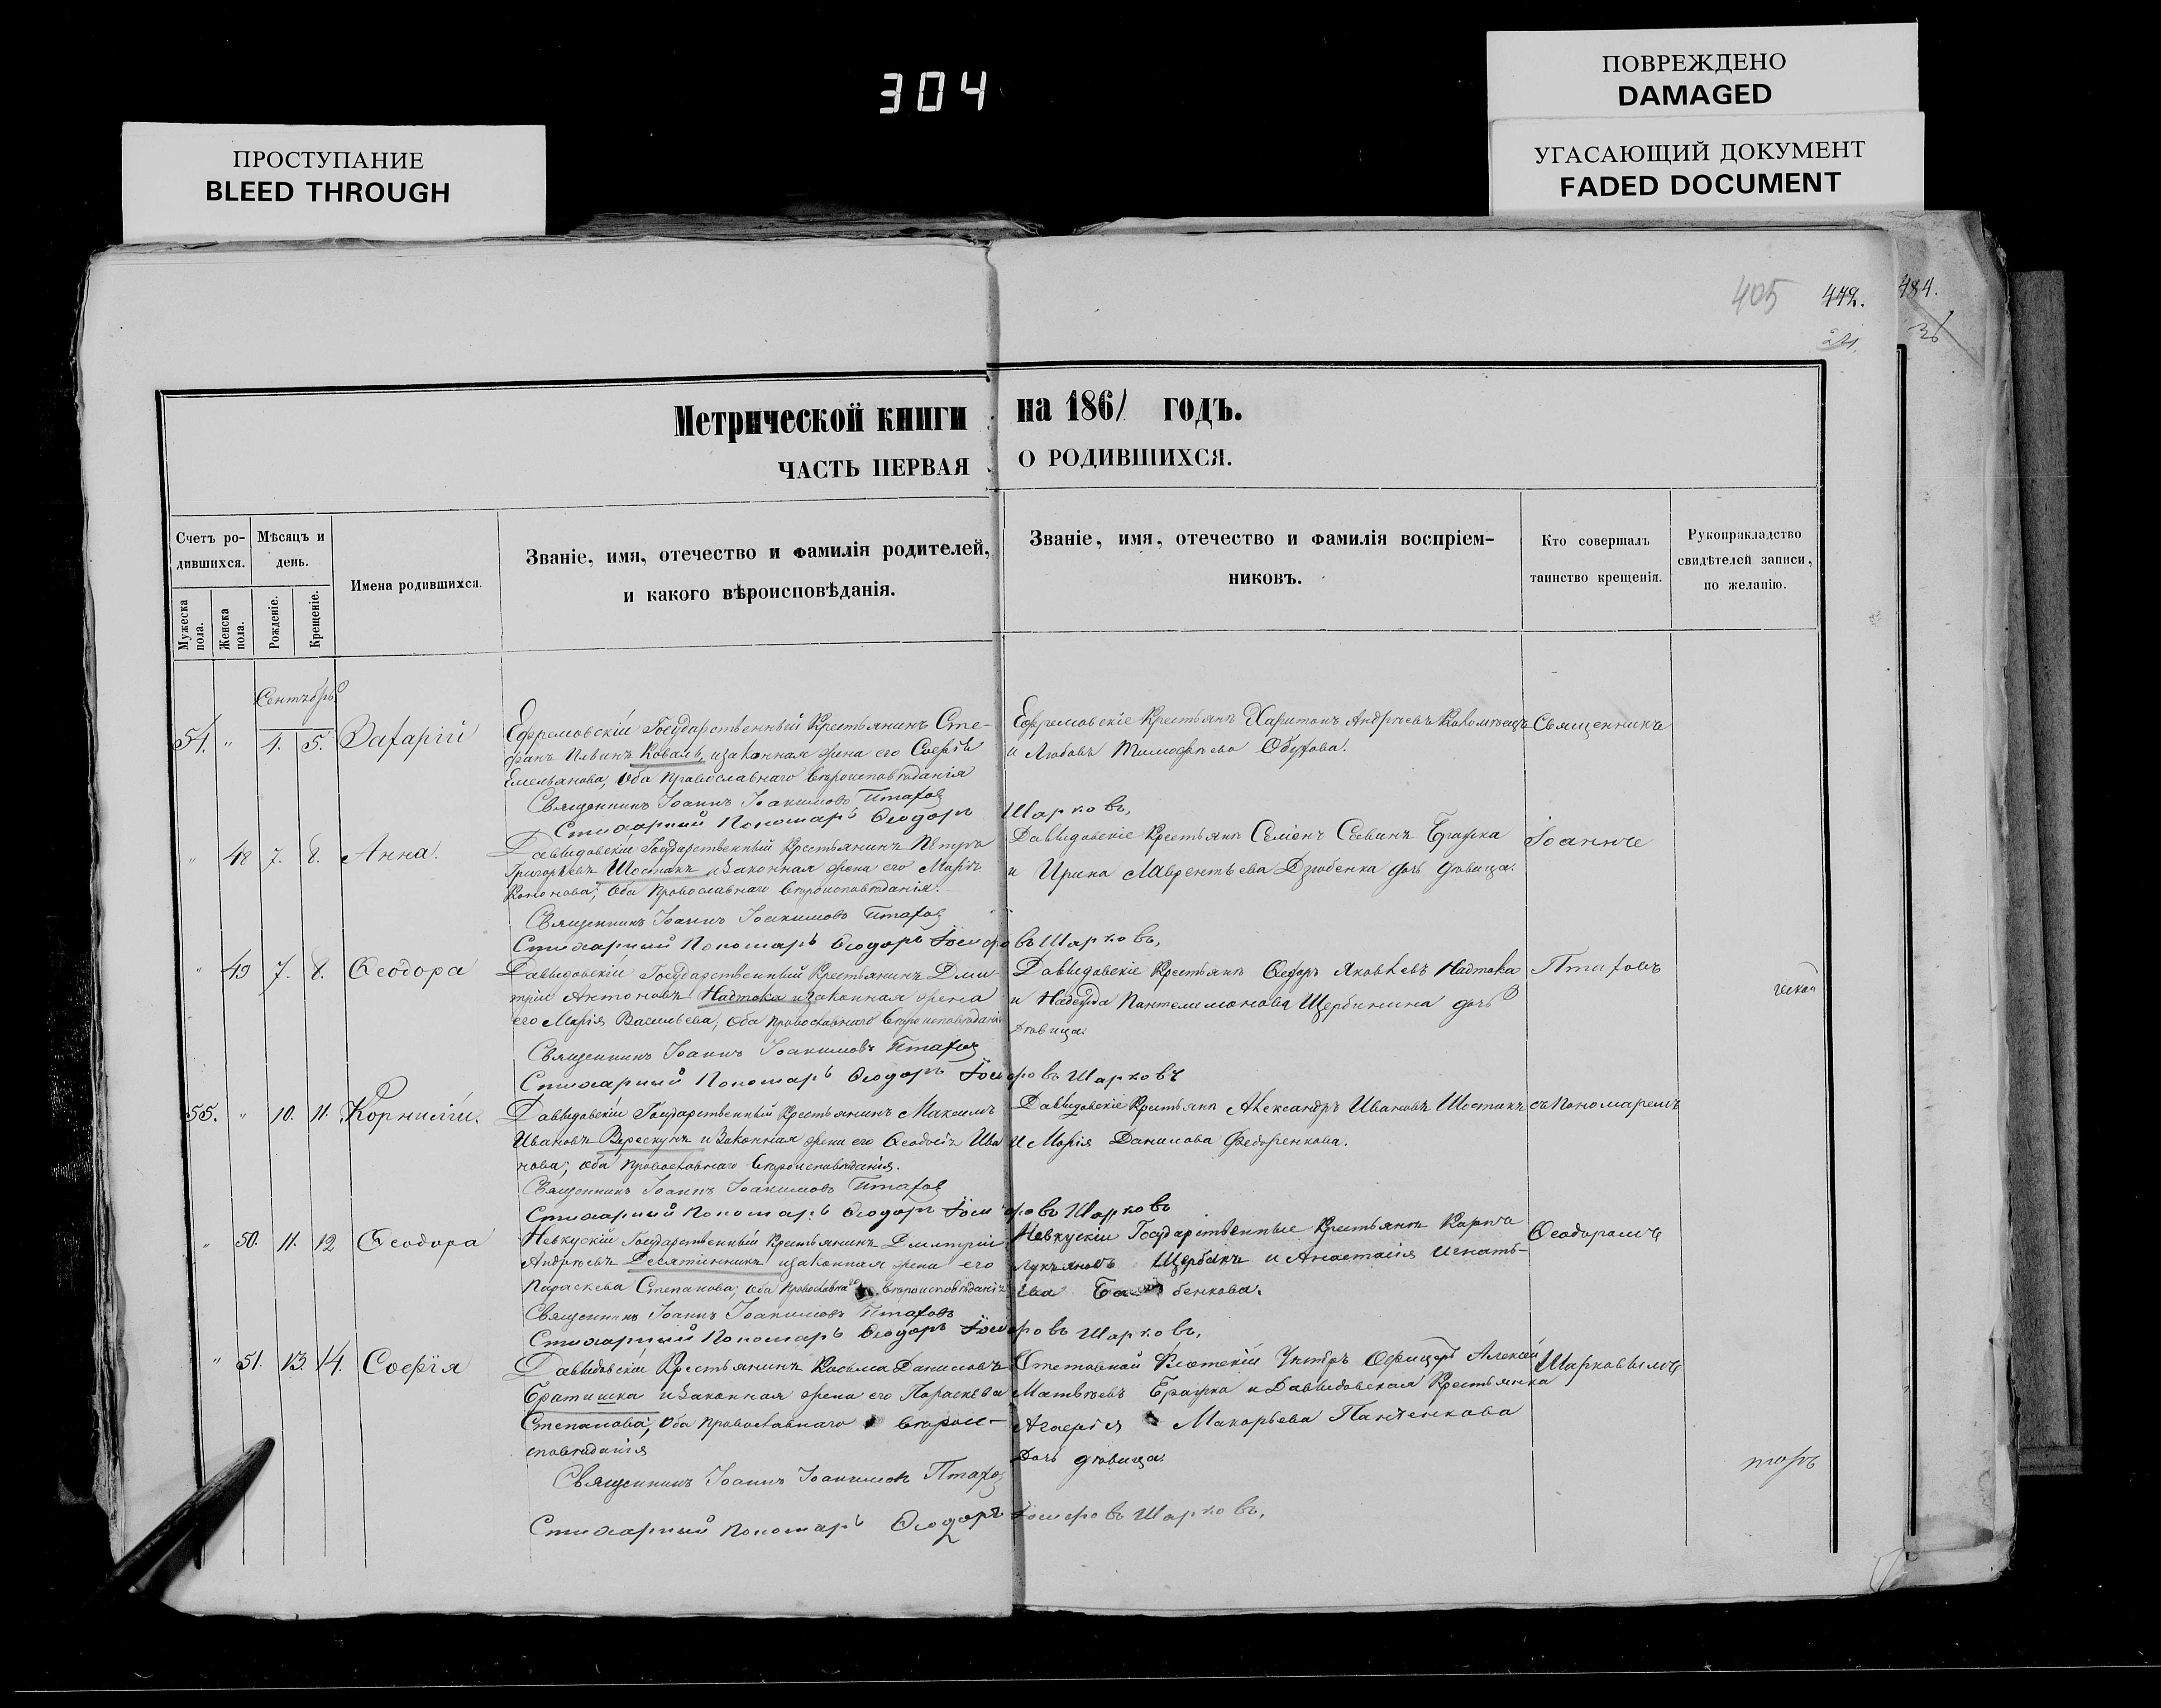 304
ПОВРЕЖДЕНО
DAMAGED
УГАСАЮЩИЙ ДОКУМЕНТ
FADED DOCUMENT
ПРОСТУПАНИЕ
BLEED THROUGH
405 442. 484.
Метрической книги на 1861 годъ.
ЧАСТЬ ПЕРВАЯ О РОДИВШИХСЯ.
Счетъ ро-
дившихся.
Мужеска
пола.
Женска
пола.
Мѣсяцъ и
день.
Рожденіе.
Крещеніе.
Имена родившихся.
Званіе, имя, отечество и фамилія родителей,
и какого вѣроисповѣданія.
Званіе, имя, отечество и фамилія воспріем-
никовъ.
Кто совершалъ
таинство крещенія.
Рукоприкладство
свидѣтелей записи,
по желанію.
Сентябрь
54. " 4. 5. Захарій
Ефремовскій Государственный Крестьянинъ Сте-
фанъ Ильинъ Коваль, и законная жена его Софія
Емельянова, оба православнаго вѣроисповѣданія
Священникъ Іоаннъ Іоакимовъ Птахов
Стихарный Пономарь Ѳеодоръ Шарковъ,
Ефремовскіе Крестьяне Харитонъ Андреевъ Коломѣецъ
и Любовь Тимофѣева Обухова.
Священникъ
" 48 7. 8. Анна.
Давыдовскій Государственный Крестьянинъ Петръ
Григорьевъ Шостакъ и законная жена его Марія
Кононова; оба православнаго вѣроисповѣданія.
Священникъ Іоаннъ Іоакимовъ Птахов
Стихарный Пономарь Ѳеодоръ Іосифовъ Шарковъ,
Давыдовскіе Крестьяне Семіонъ Савинъ Бражка
и Ирина Лаврентьева Дзюбенка дочь дѣвица.
Іоаннъ
" 49 7. 8. Ѳеодора
Давыдовскій Государственный Крестьянинъ Дми-
трій Антоновъ Надтока и законная жена
его Марія Васильева, оба православнаго вѣроисповѣданія
Священникъ Іоаннъ Іоакимовъ Птахов
Стихарный Пономарь Ѳеодоръ Іосифовъ Шарковъ
Давыдовскіе Крестьяне Ѳедоръ Яковлевъ Надтока
и Надежда Пантелимонова Щербинина дочь
дѣвица.
Птаховъ
55. " 10. 11. Корнилій.
Давыдовскій Государственный Крестьянинъ Максимъ
Ивановъ Верескунъ и законная жена его Ѳеодосія Ива
нова; оба православнаго вѣроисповѣданія.
Священникъ Іоаннъ Іоакимовъ Птахов
Стихарный Пономарь Ѳеодоръ Іосифовъ Шарковъ
Давыдовскіе Крестьяне Александръ Ивановъ Шостакъ
и Марія Данилова Федоренкова.
съ Пономаремъ
" 50. 11. 12 Ѳеодора
Невкускій Государственный Крестьянинъ Дмитрій
Андреевъ Десятинникъ и законная жена его
Параскева Степанова; оба православнаго вѣроисповѣданія
Священникъ Іоаннъ Іоакимовъ Птаховъ
Стихарный Пономарь Ѳеодоръ Іосифовъ Шарковъ,
Невкускіи Государственные Крестьяне Карпъ
Лукьяновъ Щербакъ и Анастасія Игнать-
ева бенкова.
Ѳеодоромъ
" 51. 13. 14. Софія
Давыдовскій Крестьянинъ Косьма Даниловъ
Братишка и законная жена его Параскева
Степанова; оба православнаго вѣрои-
сповѣданія
Священникъ Іоаннъ Іоакимовъ Птахов
Стихарный Пономарь Ѳеодоръ Іосифовъ Шарковъ,
Отставной Флотскій Унтеръ Офицеръ Алексѣй
Матвѣевъ Бражка и Давыдовская Крестьянка
Агафія Макарьева Панченкова
дочь дѣвица.
Шарковымъ